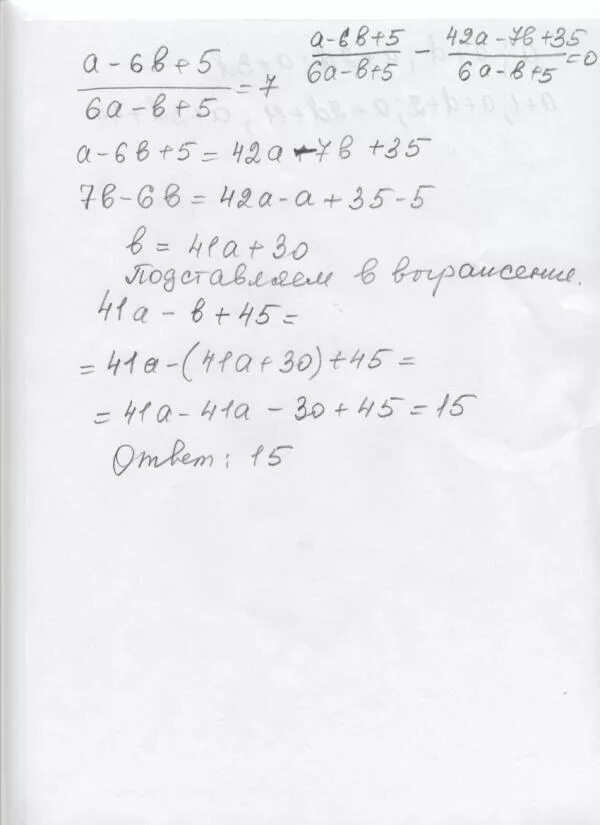 (a-6b+5)/(6a-b+5) = 7   (a-6b+5)/(6a-b+5) - (42a-7b+35)/(6a-b+5) = 0
a-6b+5 = 42a-7b+35
7b-6b = 42a-a+35-5
b = 41a+30
Подставляем в выражение.
41a-b+45=
=41a-(41a+30)+45=
=41a-41a-30+45=15
Ответ: 15